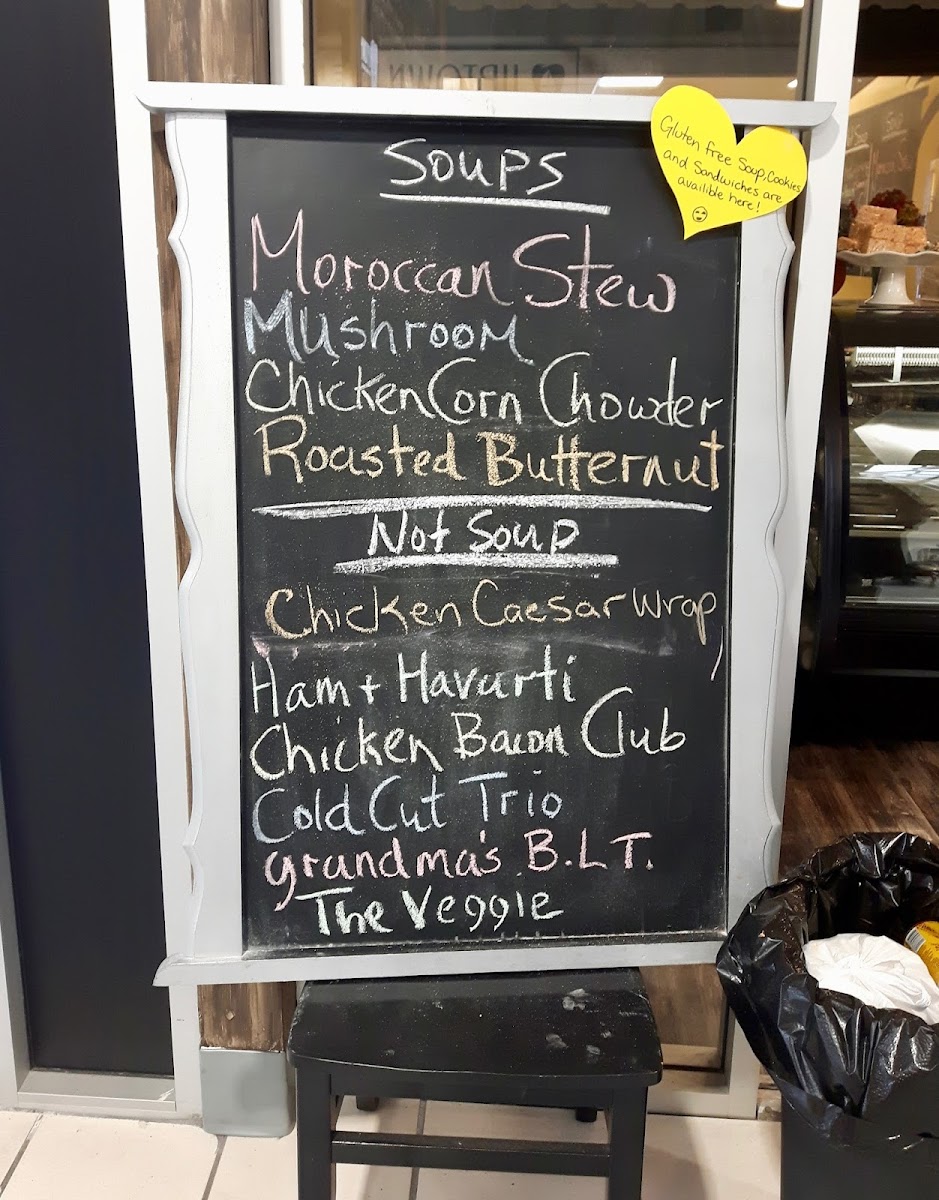 UPTOWN
Soups
Gluten free Soup, Cookies
and Sandwiches are
availible here!
Moroccan Stew
Mushroom
Chicken Corn Chowder
Roasted Butternut
Not Soup
Chicken Caesar Wrap
Ham + Havarti
Chicken Bacon Club
Cold Cut Trio
grandma's B.L.T.
The Veggie